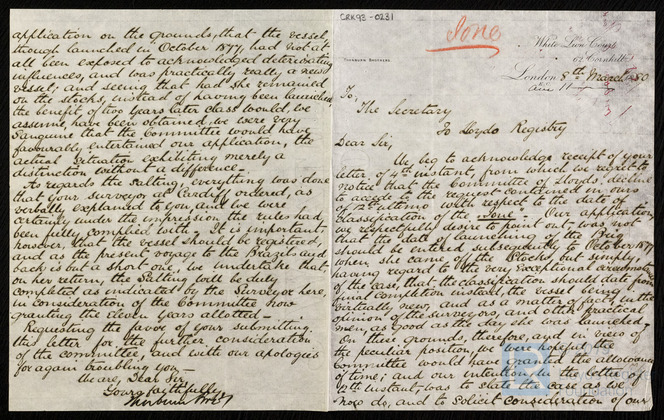 CRK93-0231
Ione
Thorburn Brothers.
White Lion Court,
62 Cornhill,
London 8th March 1880
To,
The Secretary
To Lloyds Registry
Dear Sir,
We beg to acknowledge receipt of your
letter of 4th instant, from which we regret to
notice that the Committee of Lloyds' decline
to accede to the request contained in ours
ultimo with respect to the date of
classification of the Ione. Our application,
we respectfully desire to point out, was not
that the date of launching of the Bge.
should be entered subsequently to October 1877
when she came off the Stocks, but simply,
having regard to the very exceptional circumstances
of the case, that the classification should date from
final completion instant, the vessel being
virtually new, and as a matter of fact, in the
opinion of the surveyors, and other practical
men, as good as the day she was launched.
On these grounds, therefore, and in view of
the peculiar position, we were hopeful the
Committee would have granted the allowance
of time; and our intention, in the letter of
4th instant, was to state the case as we
now do, and to solicit consideration of our
application on the grounds, that the vessel,
though launched in October 1877, had not at
all been exposed to acknowledged deteriorating
influences, and was practically really a new
vessel; and seeing that had she remained
on the stocks, instead of having been launched
the benefit of two years later class would, we
assume, have been obtained, we were very
sanguine that the Committee would have
favourably entertained our application, the
actual situation exhibiting merely a
distinction without a difference.
As regards the salting, everything was done
that your surveyors at Cardiff ordered, as
verbally explained to you, and we were
certainly under the impression the rules had
been fully complied with. It is important,
however, that the vessel should be registered,
and as the present voyage to the Brazils and
back is but a short one, we undertake that,
on her return, the Salting will be duly
completed as indicated by the Surveyor here,
in consideration of the Committee now
granting the Eleven Years allotted—
Requesting the favor of your submitting
this letter for the further consideration
of the committee, and with our apologies
for again troubling you,—
We are, Dear Sir,
Yours faithfully,
Thorburn Bros